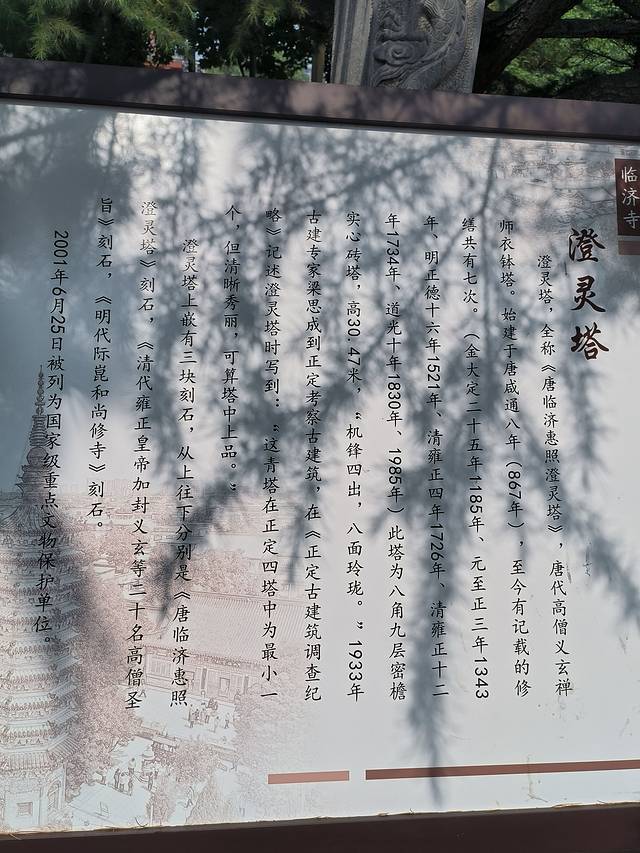 临济寺
澄灵塔
澄灵塔，全称《唐临济惠照澄灵塔》，唐代高僧义玄禅
师衣钵塔。始建于唐咸通八年（867年），至今有记载的修
缮共有七次。（金大定二十五年1185年、元至正三年1343
年、明正德十六年1521年、清雍正四年1726年、清雍正十二
年1734年、道光十年1830年、1985年）此塔为八角九层密檐
实心砖塔，高30.47米，“机锋四出，八面玲珑。”1933年
古建专家梁思成到正定考察古建筑，在《正定古建筑调查纪
略》记述澄灵塔时写到：“这青塔在正定四塔中为最小一
个，但清晰秀丽，可算塔中上品。”
澄灵塔上嵌有三块刻石，从上往下分别是《唐临济惠照
澄灵塔》刻石，《清代雍正皇帝加封义玄等二十名高僧圣
旨》刻石，《明代际崑和尚修寺》刻石。
2001年6月25日被列为国家级重点文物保护单位。